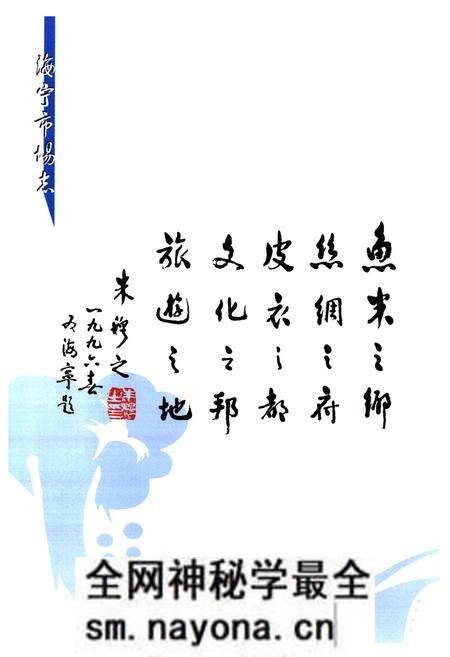 海宁市场志
魚米之鄉
絲綢之府
皮衣之都
文化之邦
旅遊之地
朱穆之
一九九六春
为海寧题
全网神秘学最全
sm.nayona.cn